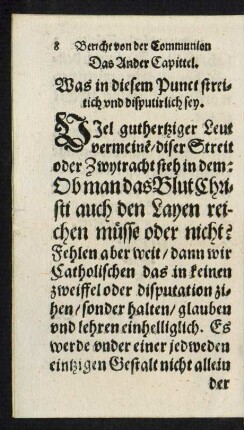 8 Bericht von der Communion
Das Ander Capittel.
Was in diesem Punct strei-
tich vnd disputirlich sey.
VJel guthertziger Leut
vermeinē/diser Streit
oder Zwytracht steh in dem:
Ob man das Blut Chri-
sti auch den Layen rei-
chen müsse oder nicht?
Fehlen aber weit/dann wir
Catholischen das in keinen
zweiffel oder disputation zi-
hen/sonder halten/glauben
vnd lehren einhelliglich. Es
werde vnder einer jedweden
eintzigen Gestalt nicht allein
der